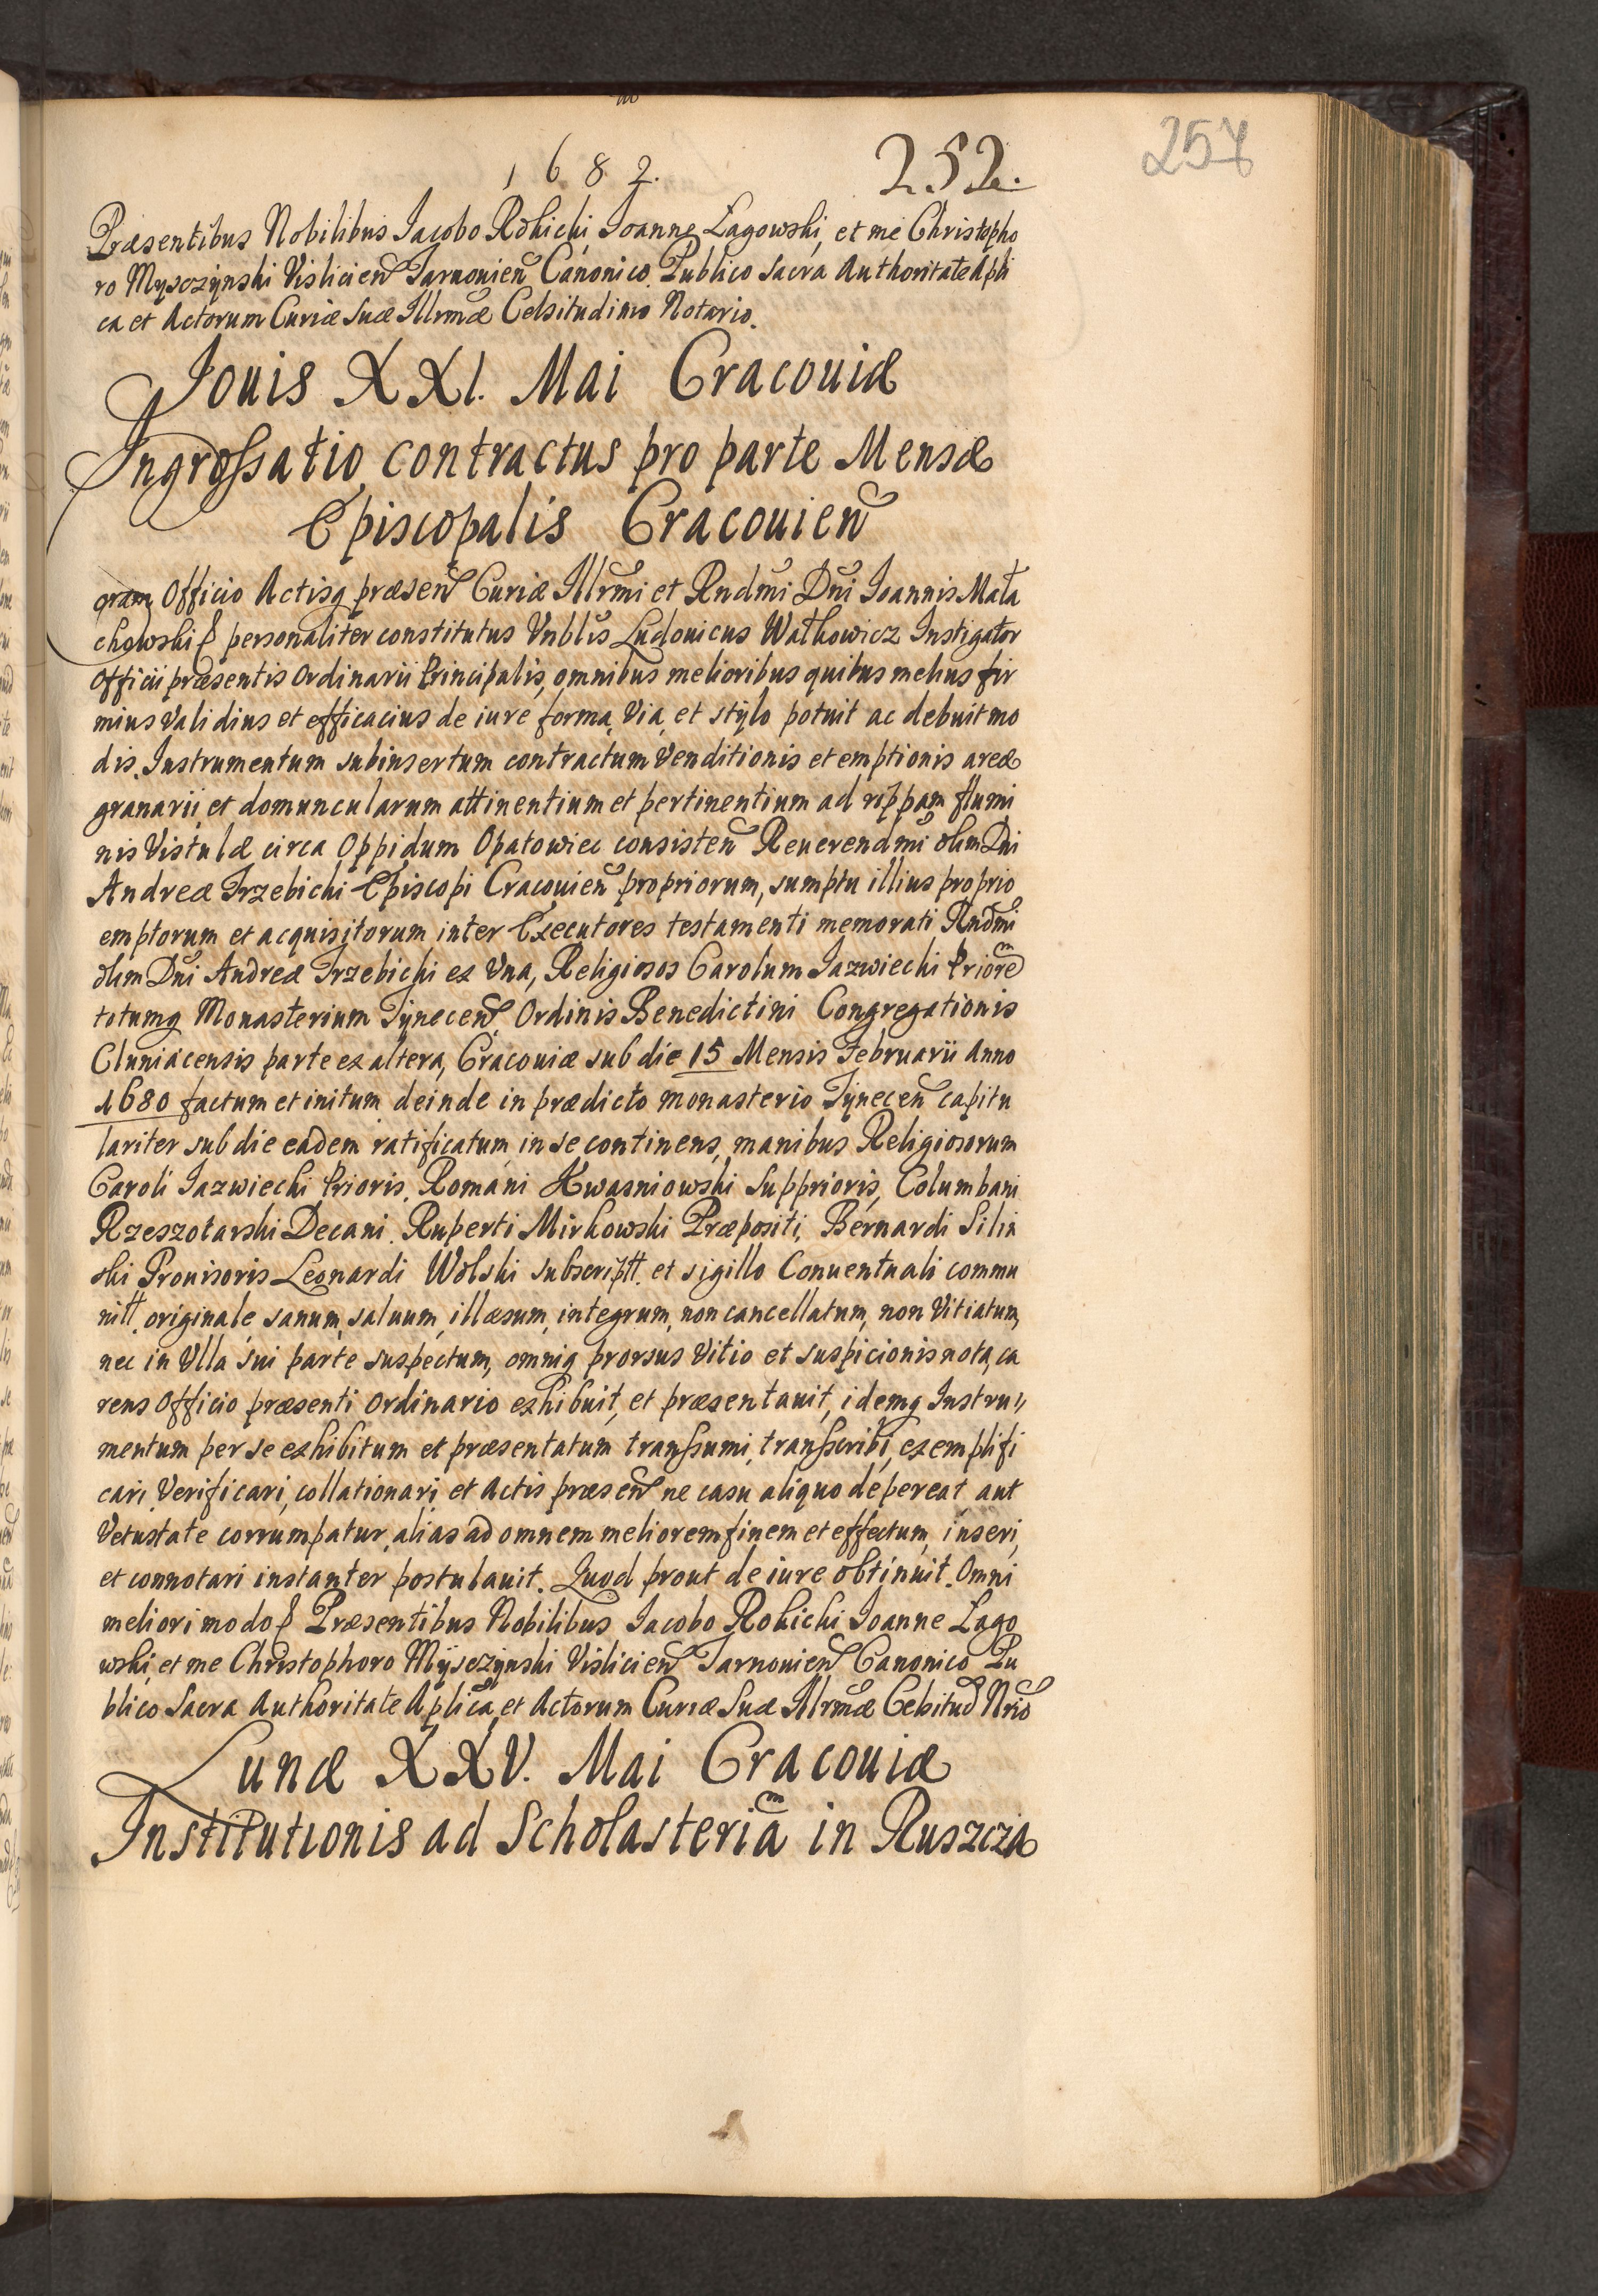 1682. 252. 257
Præsentibus Nobilibus Jacobo Rokicki, Joanne Łagowski, et me Christopho
ro Mysczynski Vislicien Tarnouien Canonico Publico Sacra Authoritate Apli
ca et Actorum Curiæ Suæ Illrmæ Celsitudinis Notario.
Jouis XXI. Mai Cracouiæ
Ingrossatio contractus pro parte Mensæ
Episcopalis Cracouien
Coram Officio Actisq præsen Curiæ Illrmi et Rndmi Dni Joannis Mała
chowski personaliter constitutus Vnblis Ludouicus Watkowicz Instigator
Officii præsentis Ordinarii Principalis, omnibus melioribus quibus melius fir
mius validius et efficacius de iure forma, via, et stylo potuit ac debuit mo
dis. Instrumentum subinsertum contractum Venditionis et emptionis areæ
granarii, et domuncularum attinentium et pertinentium ad rippam flumi
nis Vistulæ circa Oppidum Opatowiec consisten Reuerendmi olim Dni
Andreæ Trzebicki Episcopi Cracouien propriorum, sumptu illius proprio
emptorum et acquisitorum inter Executores testamenti memorati Rndmi
olim Dni Andreæ Trzebicki ex Vna, Religiosos Carolum Jazwiecki Priorem
totumq Monasterium Tynecen, Ordinis Benedictini Congregationis
Cluniacensis parte ex altera, Cracouiæ sub die 15 Mensis Februarii Anno
1680 factum et initum deinde in prædicto monasterio Tynecen capitu
lariter sub die eadem ratificatum, in se continens, manibus Religiosorum
Caroli Jazwiecki Prioris, Romani Kwasniowski Supprioris, Columbani
Rzeszotarski Decani, Ruperti Mirkowski Præpositi, Bernardi Silin
ski Prouisoris Leonardi Wolski subscriptt. et sigillo Conuentuali commu
nitt. originale sanum, saluum, illæsum, integrum, non cancellatum, non Vitiatum,
nec in Vlla sui parte suspectum, omniq prorsus Vitio et suspicionis nota, ca
rens Officio præsenti Ordinario exhibuit, et præsentauit, idemq Instru//
mentum per se exhibitum et præsentatum transsumi, transscribi, exemplifi
cari, Verificari, collationari, et Actis præsen ne casu aliquo depereat aut
Vetustate corrumpatur, alias ad omnem meliorem finem et effectum, inseri,
et connotari instanter postulauit. Quod prout de iure obtinuit. Omni
meliori modo Præsentibus Nobilibus Jacobo Rokicki Joanne Łago
wski, et me Christophoro Mysczynski Vislicien Tarnouien Canonico Pu
blico Sacra Authoritate Aplica, et Actorum Curiæ Suæ Illrmæ Celsitud Nrio
Lunæ XXV. Mai Cracouiæ
Institutionis ad Scholasteriam in Ruszcza